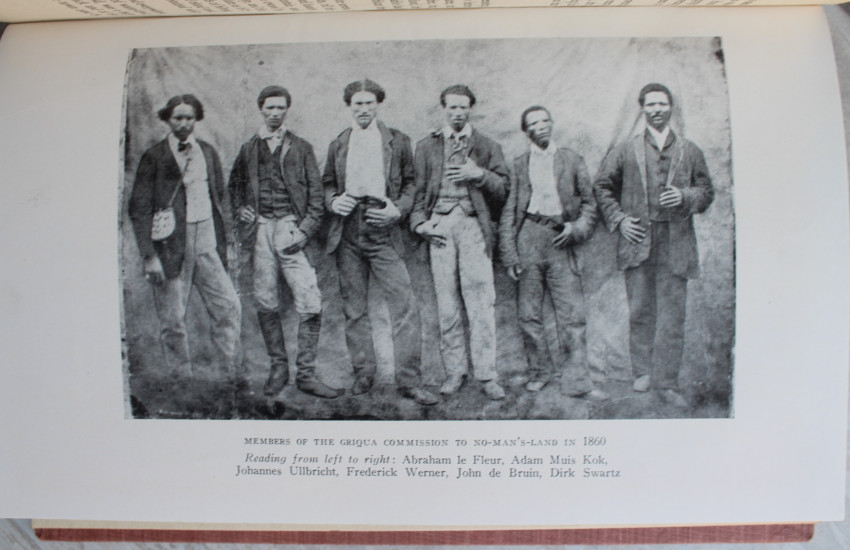 MEMBERS OF THE GRIQUA COMMISSION TO NO-MAN'S-LAND IN 1860
Reading from left to right: Abraham le Fleur, Adam Muis Kok,
Johannes Ullbricht, Frederick Werner, John de Bruin, Dirk Swartz